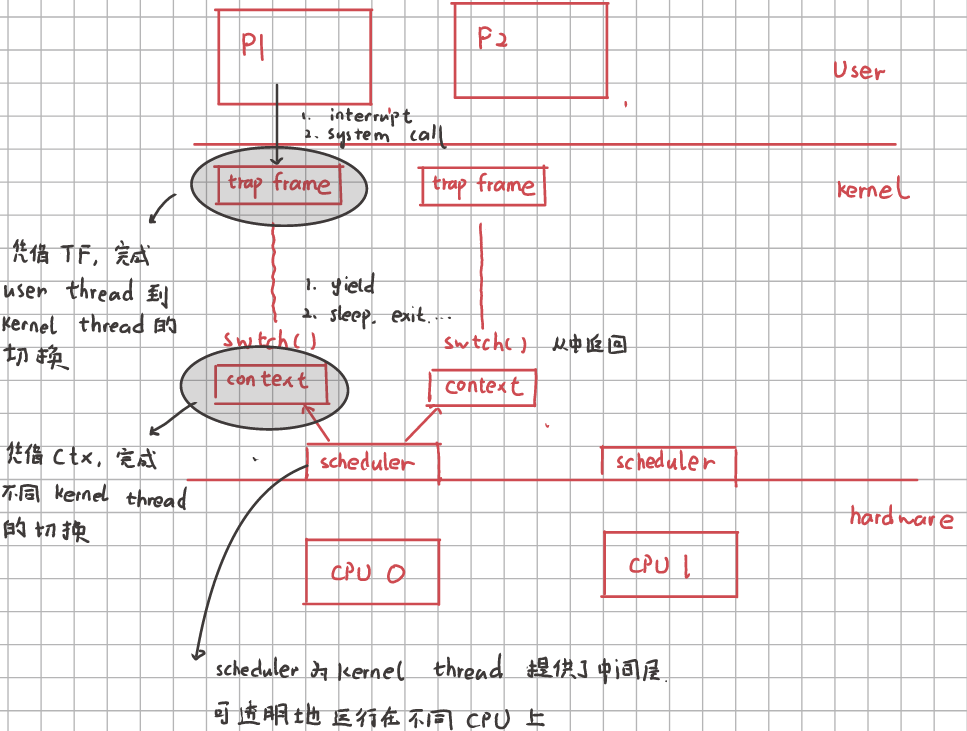 P1
P2
User
1. interrupt
2. system call
trap frame
trap frame
kernel
凭借 TF, 完成
user thread 到
kernel thread 的
切换
1. yield
2. sleep, exit...
swtch()
swtch() 从中返回
context
context
凭借 Ctx, 完成
不同 kernel thread
的切换
scheduler
scheduler
hardware
CPU 0
CPU 1
scheduler 为 kernel thread 提供了中间层.
可透明地 运行在不同 CPU 上